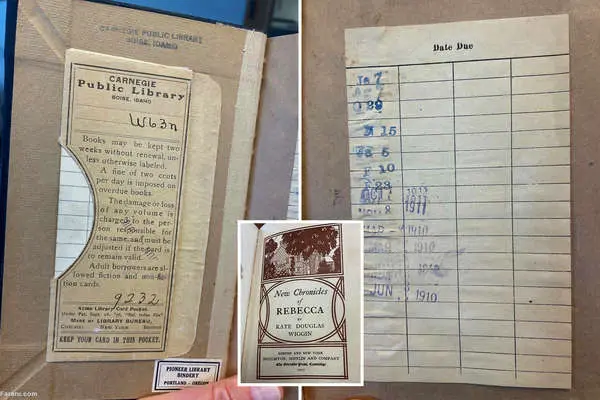 CARNEGIE PUBLIC LIBRARY
BOISE, IDAHO
CARNEGIE
Public Library
BOISE, IDAHO
W63n
Books may be kept two
weeks without renewal, un-
less otherwise labeled.
A fine of two cents
per day is imposed on
overdue books.
The damage or loss
of any volume is
charged to the per-
son responsible for
the same and must be
adjusted if the card is
to remain valid.
Adult borrowers are al-
lowed fiction and non-fic-
tion cards.
9232
Acme Library Card Pocket
Made by LIBRARY BUREAU,
KEEP YOUR CARD IN THIS POCKET.
PIONEER LIBRARY
BINDERY
PORTLAND - OREGON
New Chronicles
of
REBECCA
BY
KATE DOUGLAS
WIGGIN
BOSTON AND NEW YORK
HOUGHTON, MIFFLIN AND COMPANY
The Riverside Press, Cambridge
Date Due
Ja 7
O 29
M 15
Ja 5
F 10
F 23
1911
1910
JUN 1910
Fareno.com